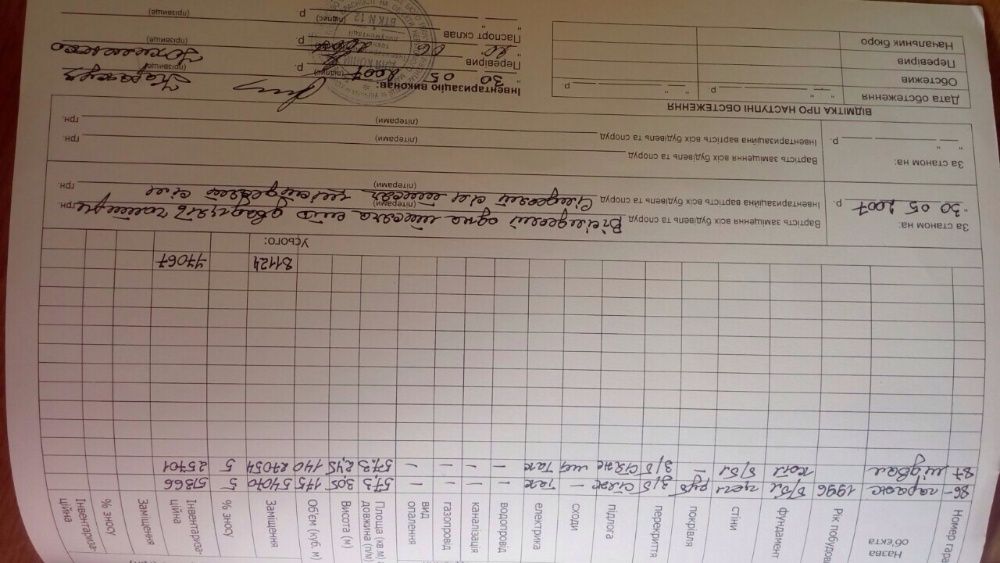 Номер гара
Назва об'єкта
Рік побудови
фундамент
стіни
покрівля
перекриття
підлога
сходи
електрика
водопровід
каналізація
газопровід
вид опалення
Площа (кв.м) довжина (п/м)
Висота (м)
Об'єм (куб. м)
Заміщення
% зносу
Інвентариза-ційна
Заміщення
% зносу
Інвентариза-ційна
86 гараж 1996 б/бл цегл руб з/б стяж — так — — — — 57,3 305 175 54070 5 51366
87 підвал кол б/бл — з/б стяж так — — — — 57,3 2,45 140 27054 5 25701
Усього: 81124 77067
За станом на:
"30" 05 2007 р.
Вартість заміщення всіх будівель та споруд Вісімдесят одна тисяча сто двадцять чотири грн.
(літерами)
Інвентаризаційна вартість всіх будівель та споруд Сімдесят сім тисяч шістдесят сім грн.
(літерами)
За станом на:
" " р.
Вартість заміщення всіх будівель та споруд грн.
(літерами)
Інвентаризаційна вартість всіх будівель та споруд грн.
(літерами)
ВІДМІТКА ПРО НАСТУПНІ ОБСТЕЖЕННЯ
Дата обстеження " " р " " р
Обстежив
Перевірив
Начальник бюро
Інвентаризацію виконав:
"30" 05 2007 р.
(підпис) (прізвище)
Перевірив
(прізвище)
Паспорт склав
" " р.
(підпис) (прізвище)
ВТК N 12